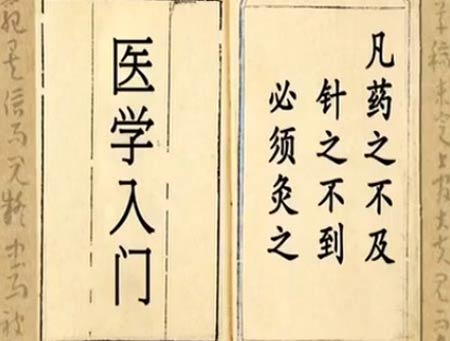 凡药之不及
针之不到
必须灸之
医学入门